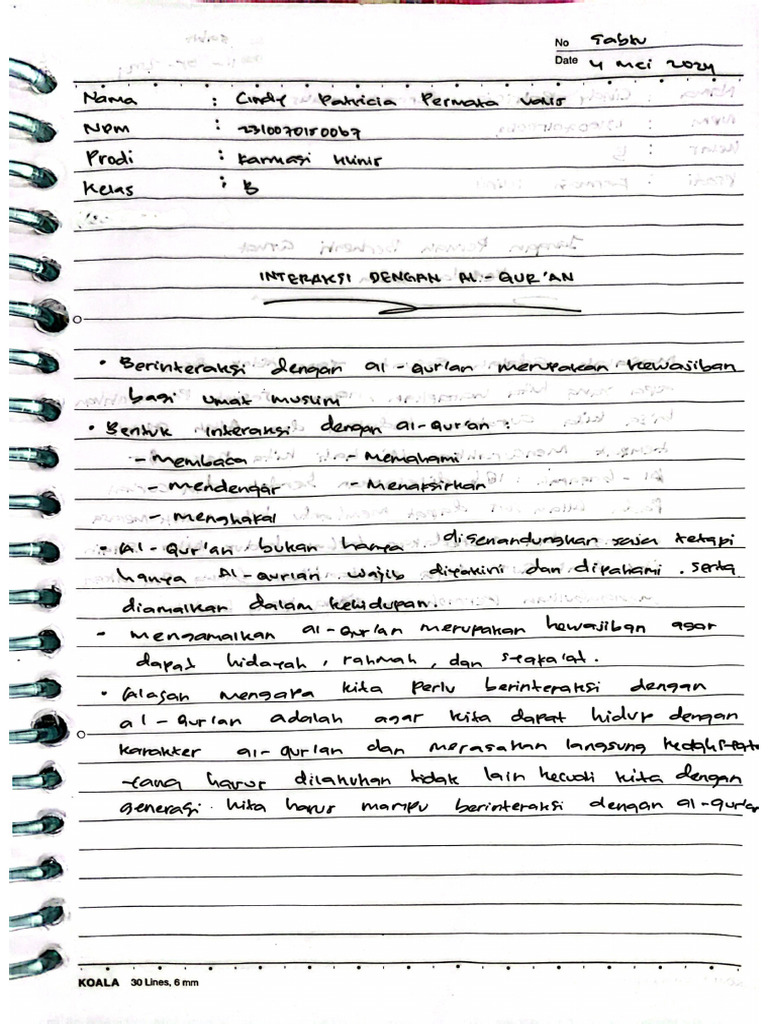 No Sabtu
Date 4 Mei 2024
Nama : Cindy Patricia Permata
NPM : 2310070150067
Prodi : Farmasi Klinis
Kelas : B
INTERAKSI DENGAN AL-QUR'AN
• Berinteraksi dengan al-qur'an merupakan kewajiban
bagi umat muslim
• Bentuk interaksi dengan al-qur'an :
- membaca - Memahami
- mendengar - Menafsirkan
- menghafal
• Al-Qur'an bukan hanya disenandungkan saja tetapi
hanya Al-qur'an wajib diyakini dan dipahami. serta
diamalkan dalam kehidupan.
- mengamalkan al-qur'an merupakan kewajiban agar
dapat hidayah, rahmah, dan syafa'at.
• Alasan mengapa kita perlu berinteraksi dengan
al-qur'an adalah agar kita dapat hidup dengan
karakter al-qur'an dan merasakan langsung
yang harus dilakukan tidak lain kecuali kita dengan
generasi kita harus mampu berinteraksi dengan al-qur'an
KOALA 30 Lines, 6 mm